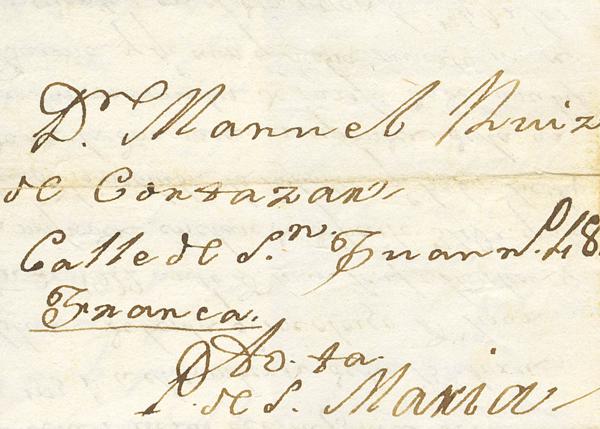 Dn. Manuel Ruiz
de Cortazar
Calle de Sn. Juan no. 48.
Franca.
Pto. ta.
P. de S. Maria